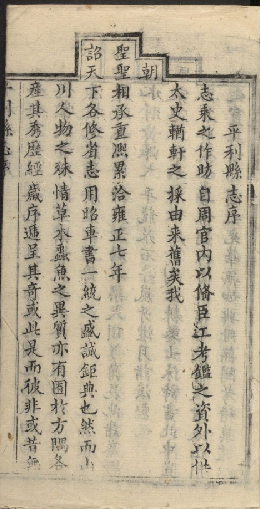 平利縣志序
志乘之作昉自周官內以偹臣工考鑑之資外以供
太史輶軒之採由來舊矣我
朝
聖聖相承重熙累洽雍正七年
詔天下各修省志用昭車書一統之盛誠鉅典也然而山
川人物之殊情草木蟲魚之異質亦有囿於方隅各
產其秀歷經歲序遞呈其奇或此是而彼非或昔無
平利縣志